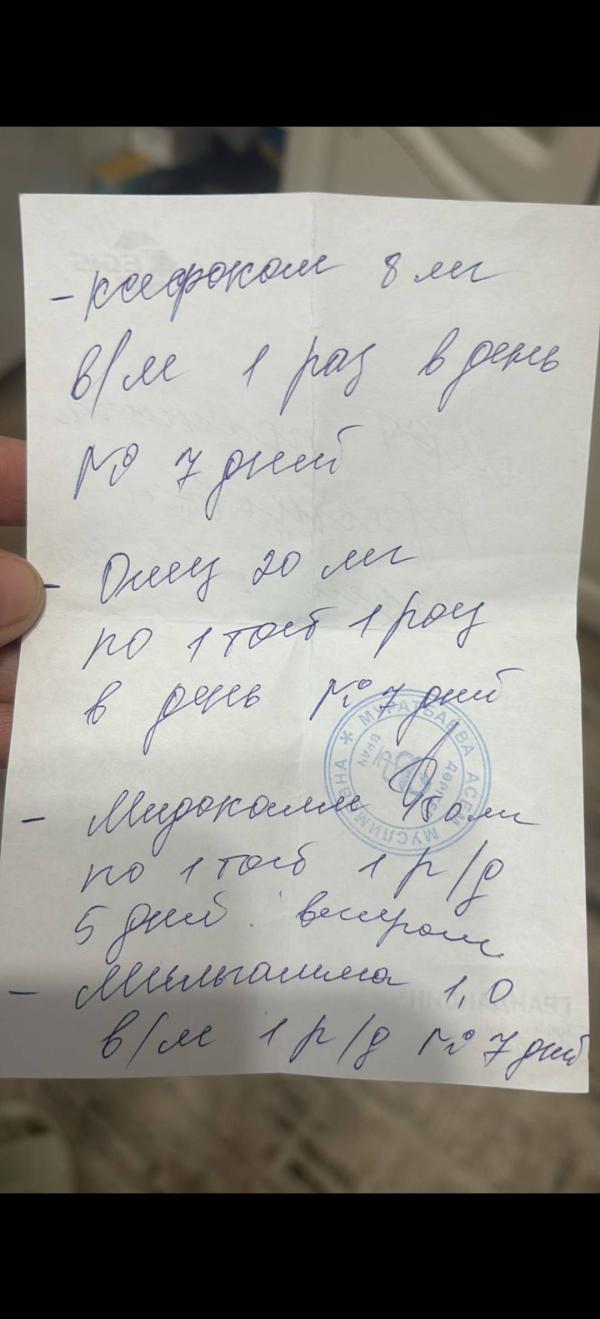 - Ксефокам 8 мг
в/м 1 раз в день
№ 7 дней
- Омез 20 мг
по 1 таб 1 раз
в день № 7 дней
МУРАТБАЕВА АСЕМ МУСЛИМОВНА
ВРАЧ
ДӘРІГЕР
- Мидокалм 150 мг
по 1 таб 1 р/д
5 дней вечером
- Мильгамма 1,0
в/м 1 р/д № 7 дней